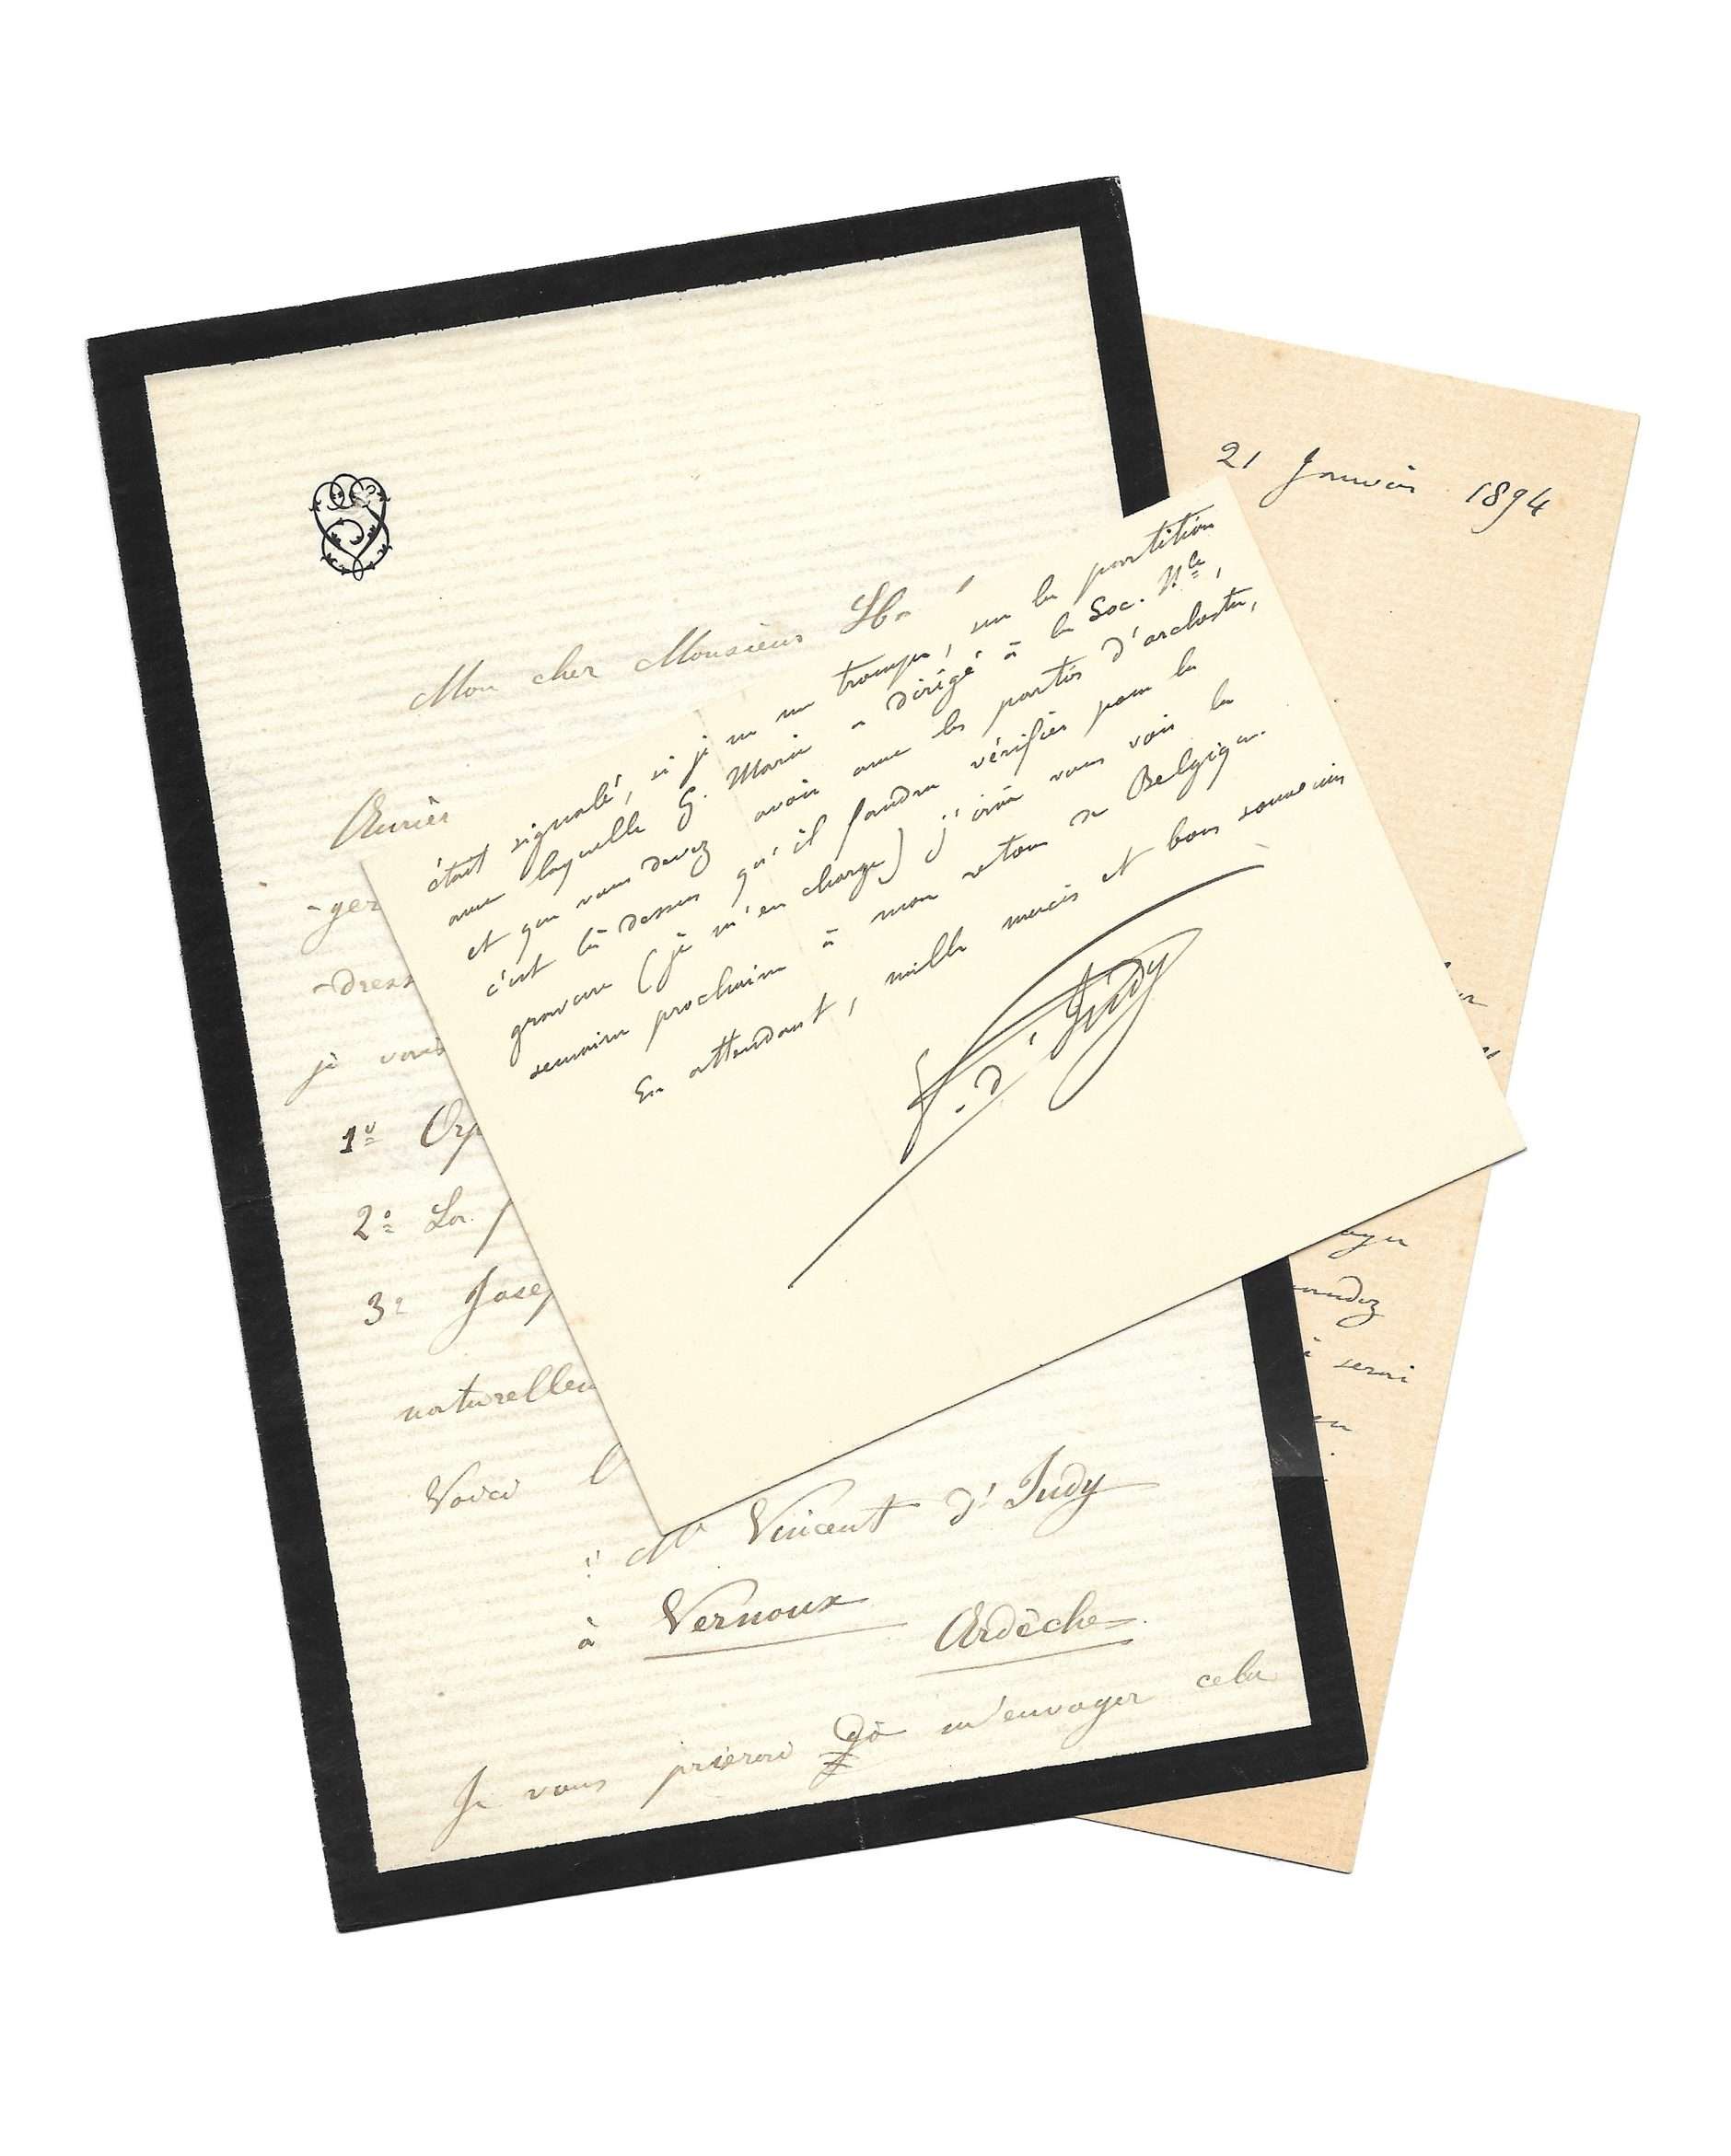 21 Janvier 1894
Mon cher Monsieur
Auriez
-ger
-dress
je vous
1º Orp
2º La
3º Josep
naturellem
Voici
à Mr Vincent d'Indy
à Vernoux Ardèche.
Je vous prierai de m'envoyer cela
était signalé, si je ne me trompe, sur la partition
avec laquelle G. Marie a dirigé à la Soc. Nle,
et que vous devez avoir avec les parties d'orchestre,
c'est là dessus qu'il faudra vérifier pour la
gravure (je m'en charge) j'irai vous voir la
semaine prochaine à mon retour de Belgique.
En attendant, mille mercis et bons souvenirs
V. d'Indy
serai